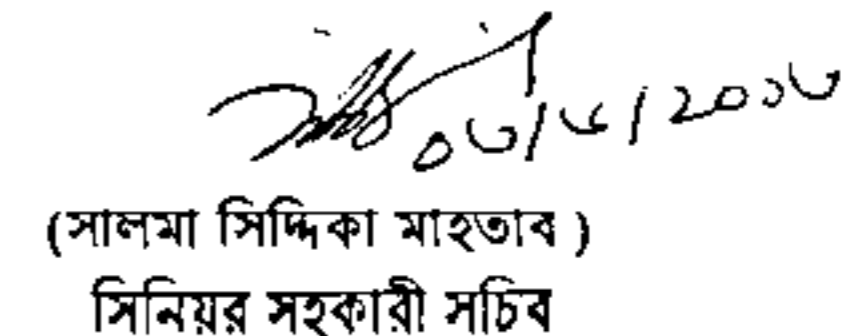 ০৩/৬/২০১৩
(সালমা সিদ্দিকা মাহতাব )
সিনিয়র সহকারী সচিব